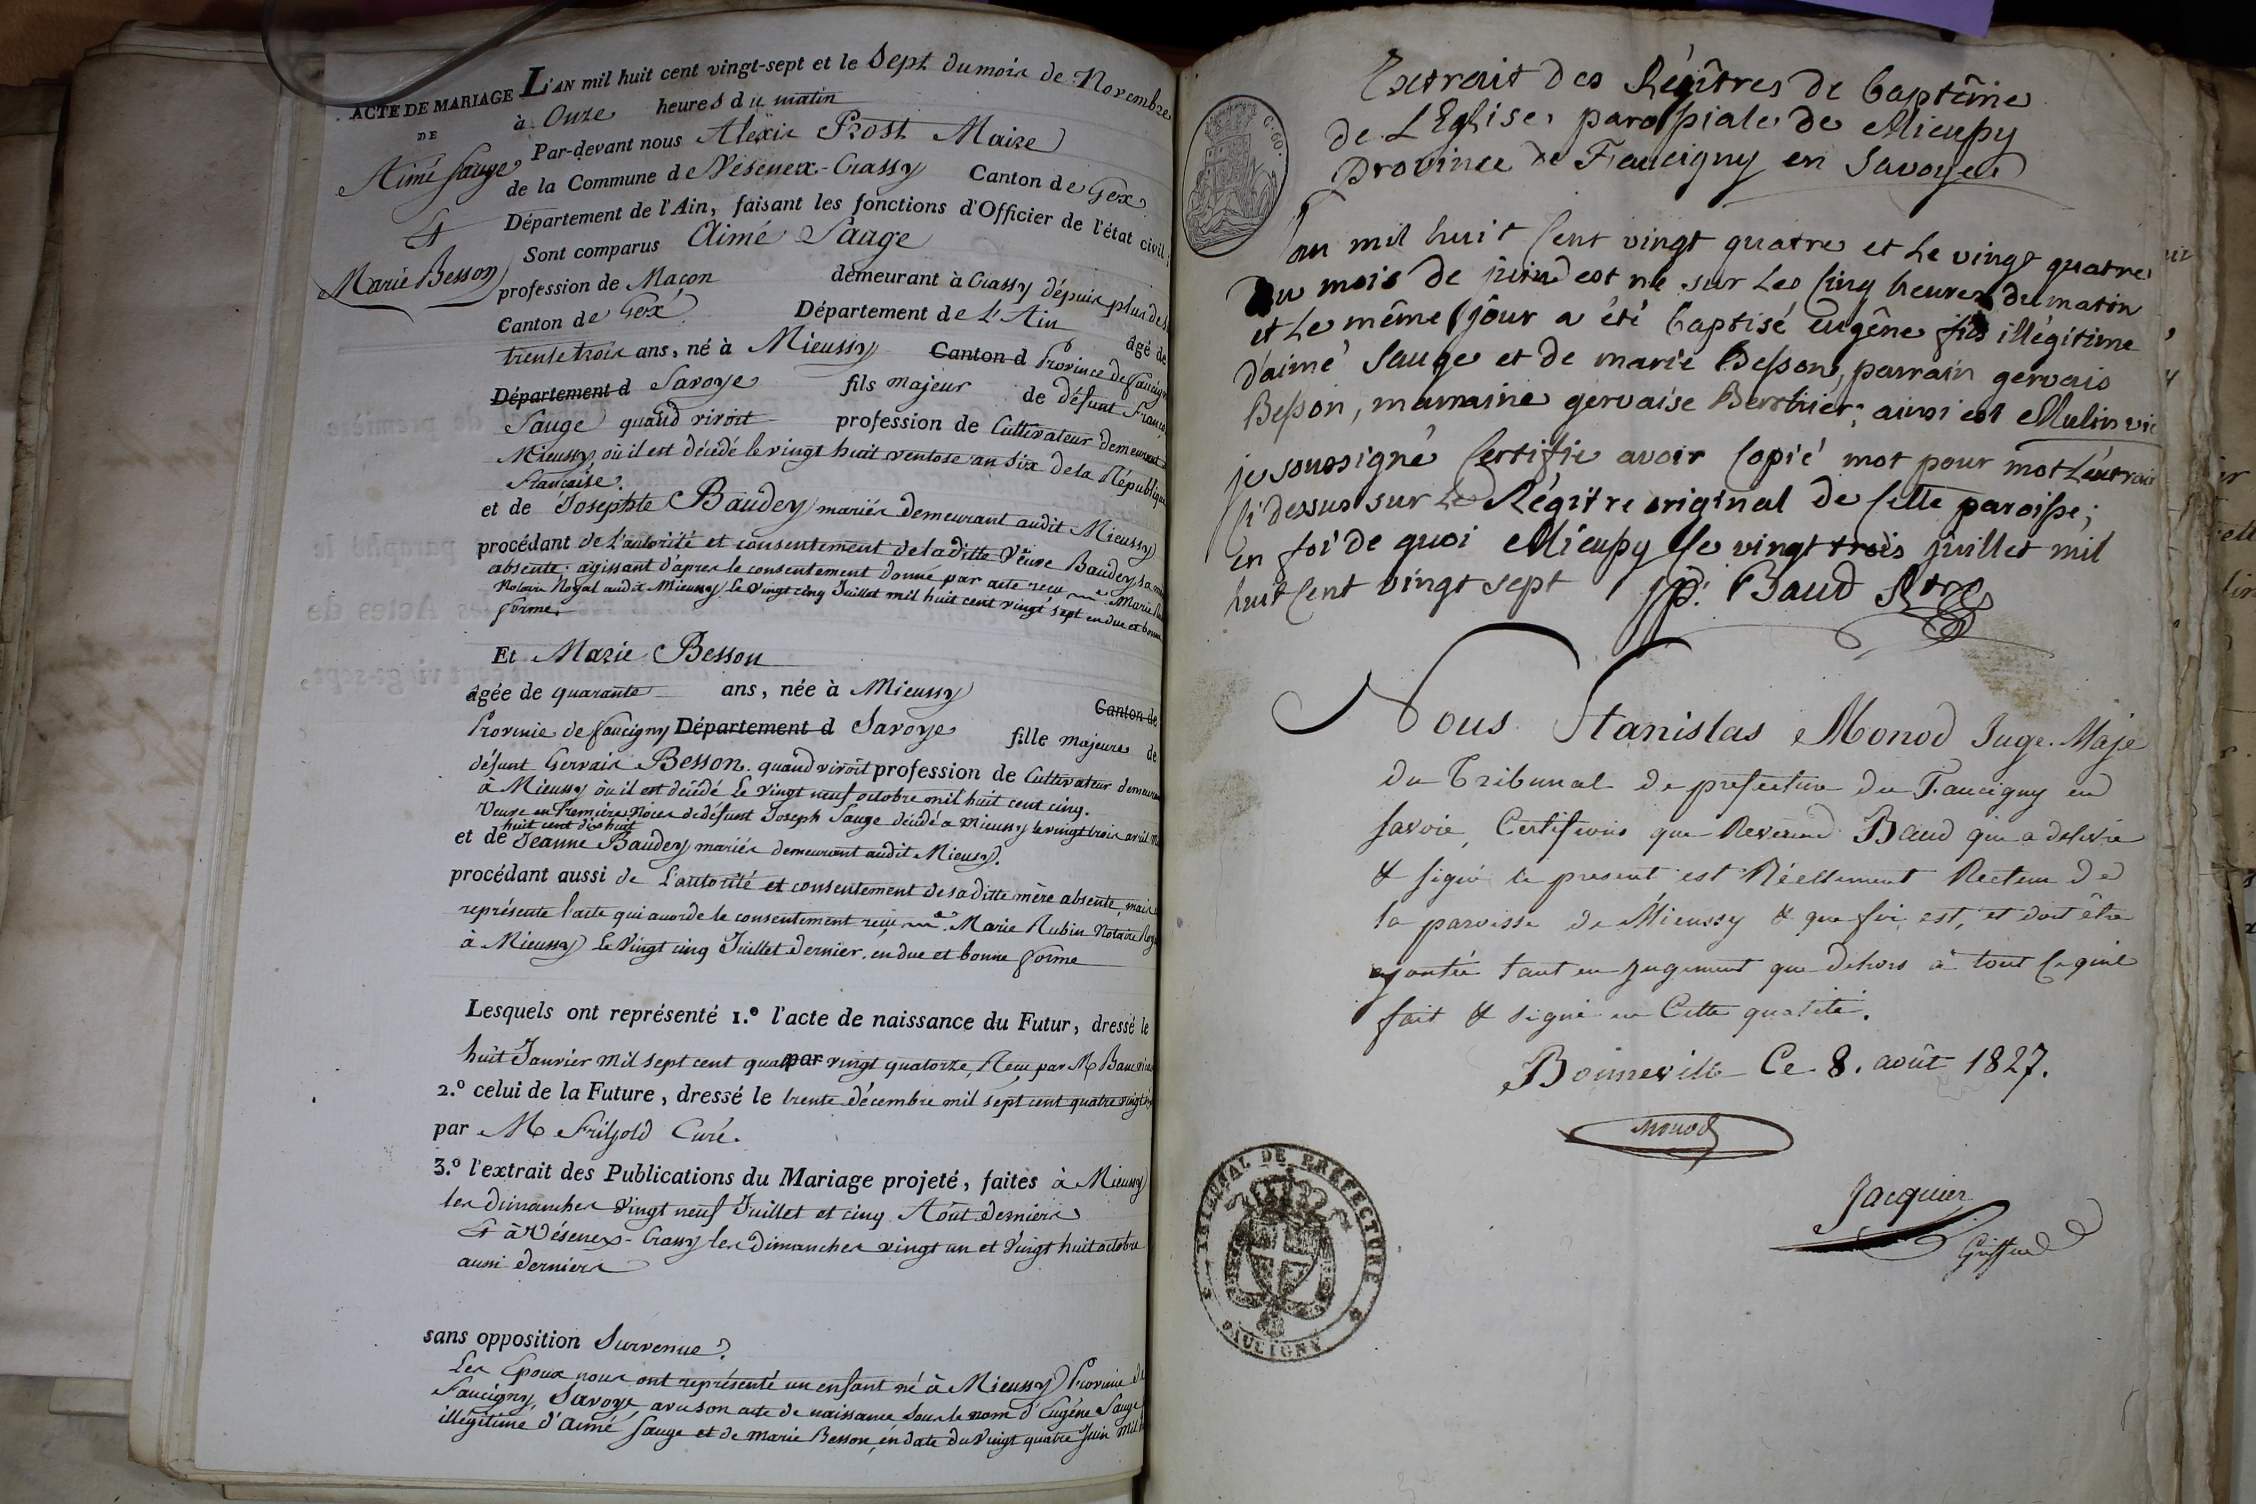 ACTE DE MARIAGE
DE
Aimé Sauge
Et
Marie Besson
L'AN mil huit cent vingt-sept et le Sept du mois de Novembre
à Onze heures du matin
Par-devant nous Alexis Prost Maire
de la Commune de Vésenex-Crassy Canton de Gex
Département de l'Ain, faisant les fonctions d'Officier de l'état civil ;
Sont comparus Aimé Sauge
profession de Maçon demeurant à Crassy dépuis plus de
Canton de Gex Département de L'Ain âgé de
trente trois ans, né à Mieussy Canton d Province de Faucigny
Département d Savoye fils majeur de défunt François
Sauge quand vivoit profession de Cultivateur demeurant à
Mieussy où il est décédé le vingt huit ventose an Six de la République
française.
et de Josephte Baudey mariés demeurant audit Mieussy
procédant de l'autorité et consentement de la ditte Veuve Baudey, sa mère
absente. agissant d'après le consentement donné par acte reçu me. Marie
Notaire Royal audit Mieussy, Le vingt cinq Juillet mil huit cent vingt sept en due et bonne
forme.
Et Marie Besson
âgée de quarante ans, née à Mieussy Canton de
Province de faucigny Département d Savoye fille majeure de
défunt Gervais Besson. quand vivoit profession de Cultivateur demeurant
à Mieussy où il est décédé Le vingt neuf octobre mil huit cent cinq.
Veuve en Première Noces de défunt Joseph Sauge décédé à Mieussy le vingt trois avril mil
huit cent dix huit
et de Jeanne Baudey mariés demeurant audit Mieussy.
procédant aussi de L'autorité et consentement de sa ditte mère absente, mais
représente l'acte qui accorde le consentement reçu me. Marie Rubin Notaire Royal
à Mieussy Le Vingt cinq Juillet dernier, en due et bonne forme
Lesquels ont représenté 1.º l'acte de naissance du Futur, dressé le
huit Janvier mil sept cent quatre par vingt quatorze, Reçu par M
2.º celui de la Future, dressé le trente décembre mil sept cent quatre vingt
par M Curé.
3.º l'extrait des Publications du Mariage projeté, faites à Mieussy
les dimanches vingt neuf Juillet et cinq Août derniers
Et à Vésenex-Crassy les dimanches vingt un et Vingt huit octobre
aussi derniers
sans opposition Survenue.
Les Epoux nous ont représenté un enfant né à Mieussy Province de
Faucigny, Savoye, avec son acte de naissance Sous le nom d'Eugène Sauge
illégitime d'Aimé Sauge et de Marie Besson, en date du Vingt quatre Juin mil
C. 60.
Extrait des Régîtres de baptême
de L'Eglise paroissiale de Mieussy
province de Faucigny en Savoye
L'an mil huit Cent vingt quatre et le vingt quatre
Du mois de juin est né sur les Cinq heures du matin
et Le même jour a été baptisé eugêne fils illégitime
d'aimé Sauge et de marie Besson, parrain gervais
Besson, marraine gervaise Berthier; ainsi est Mulin vic
je soussigné Certifie avoir Copié mot pour mot L'extrait
Ci dessus sur le Régître original de Cette paroisse;
en foi de quoi Mieussy Ce vingt trois juillet mil
huit Cent vingt sept p. Baud Rtre
Nous Stanislas Monod Juge Maje
du Tribunal de prefecture du Faucigny en
Savoie, Certifions que Reverend Baud qui a delivré
& signé le present est Réellement Recteur de
la paroisse de Mieussy & que foi est, et doit être
ajoutée tant en Jugement que dehors à tout Ce quil
fait & signe en Cette qualité.
Bonneville Ce 8. août 1827.
Monod
Jacquier
Greffier
TRIBUNAL DE PREFECTURE
FAUCIGNY